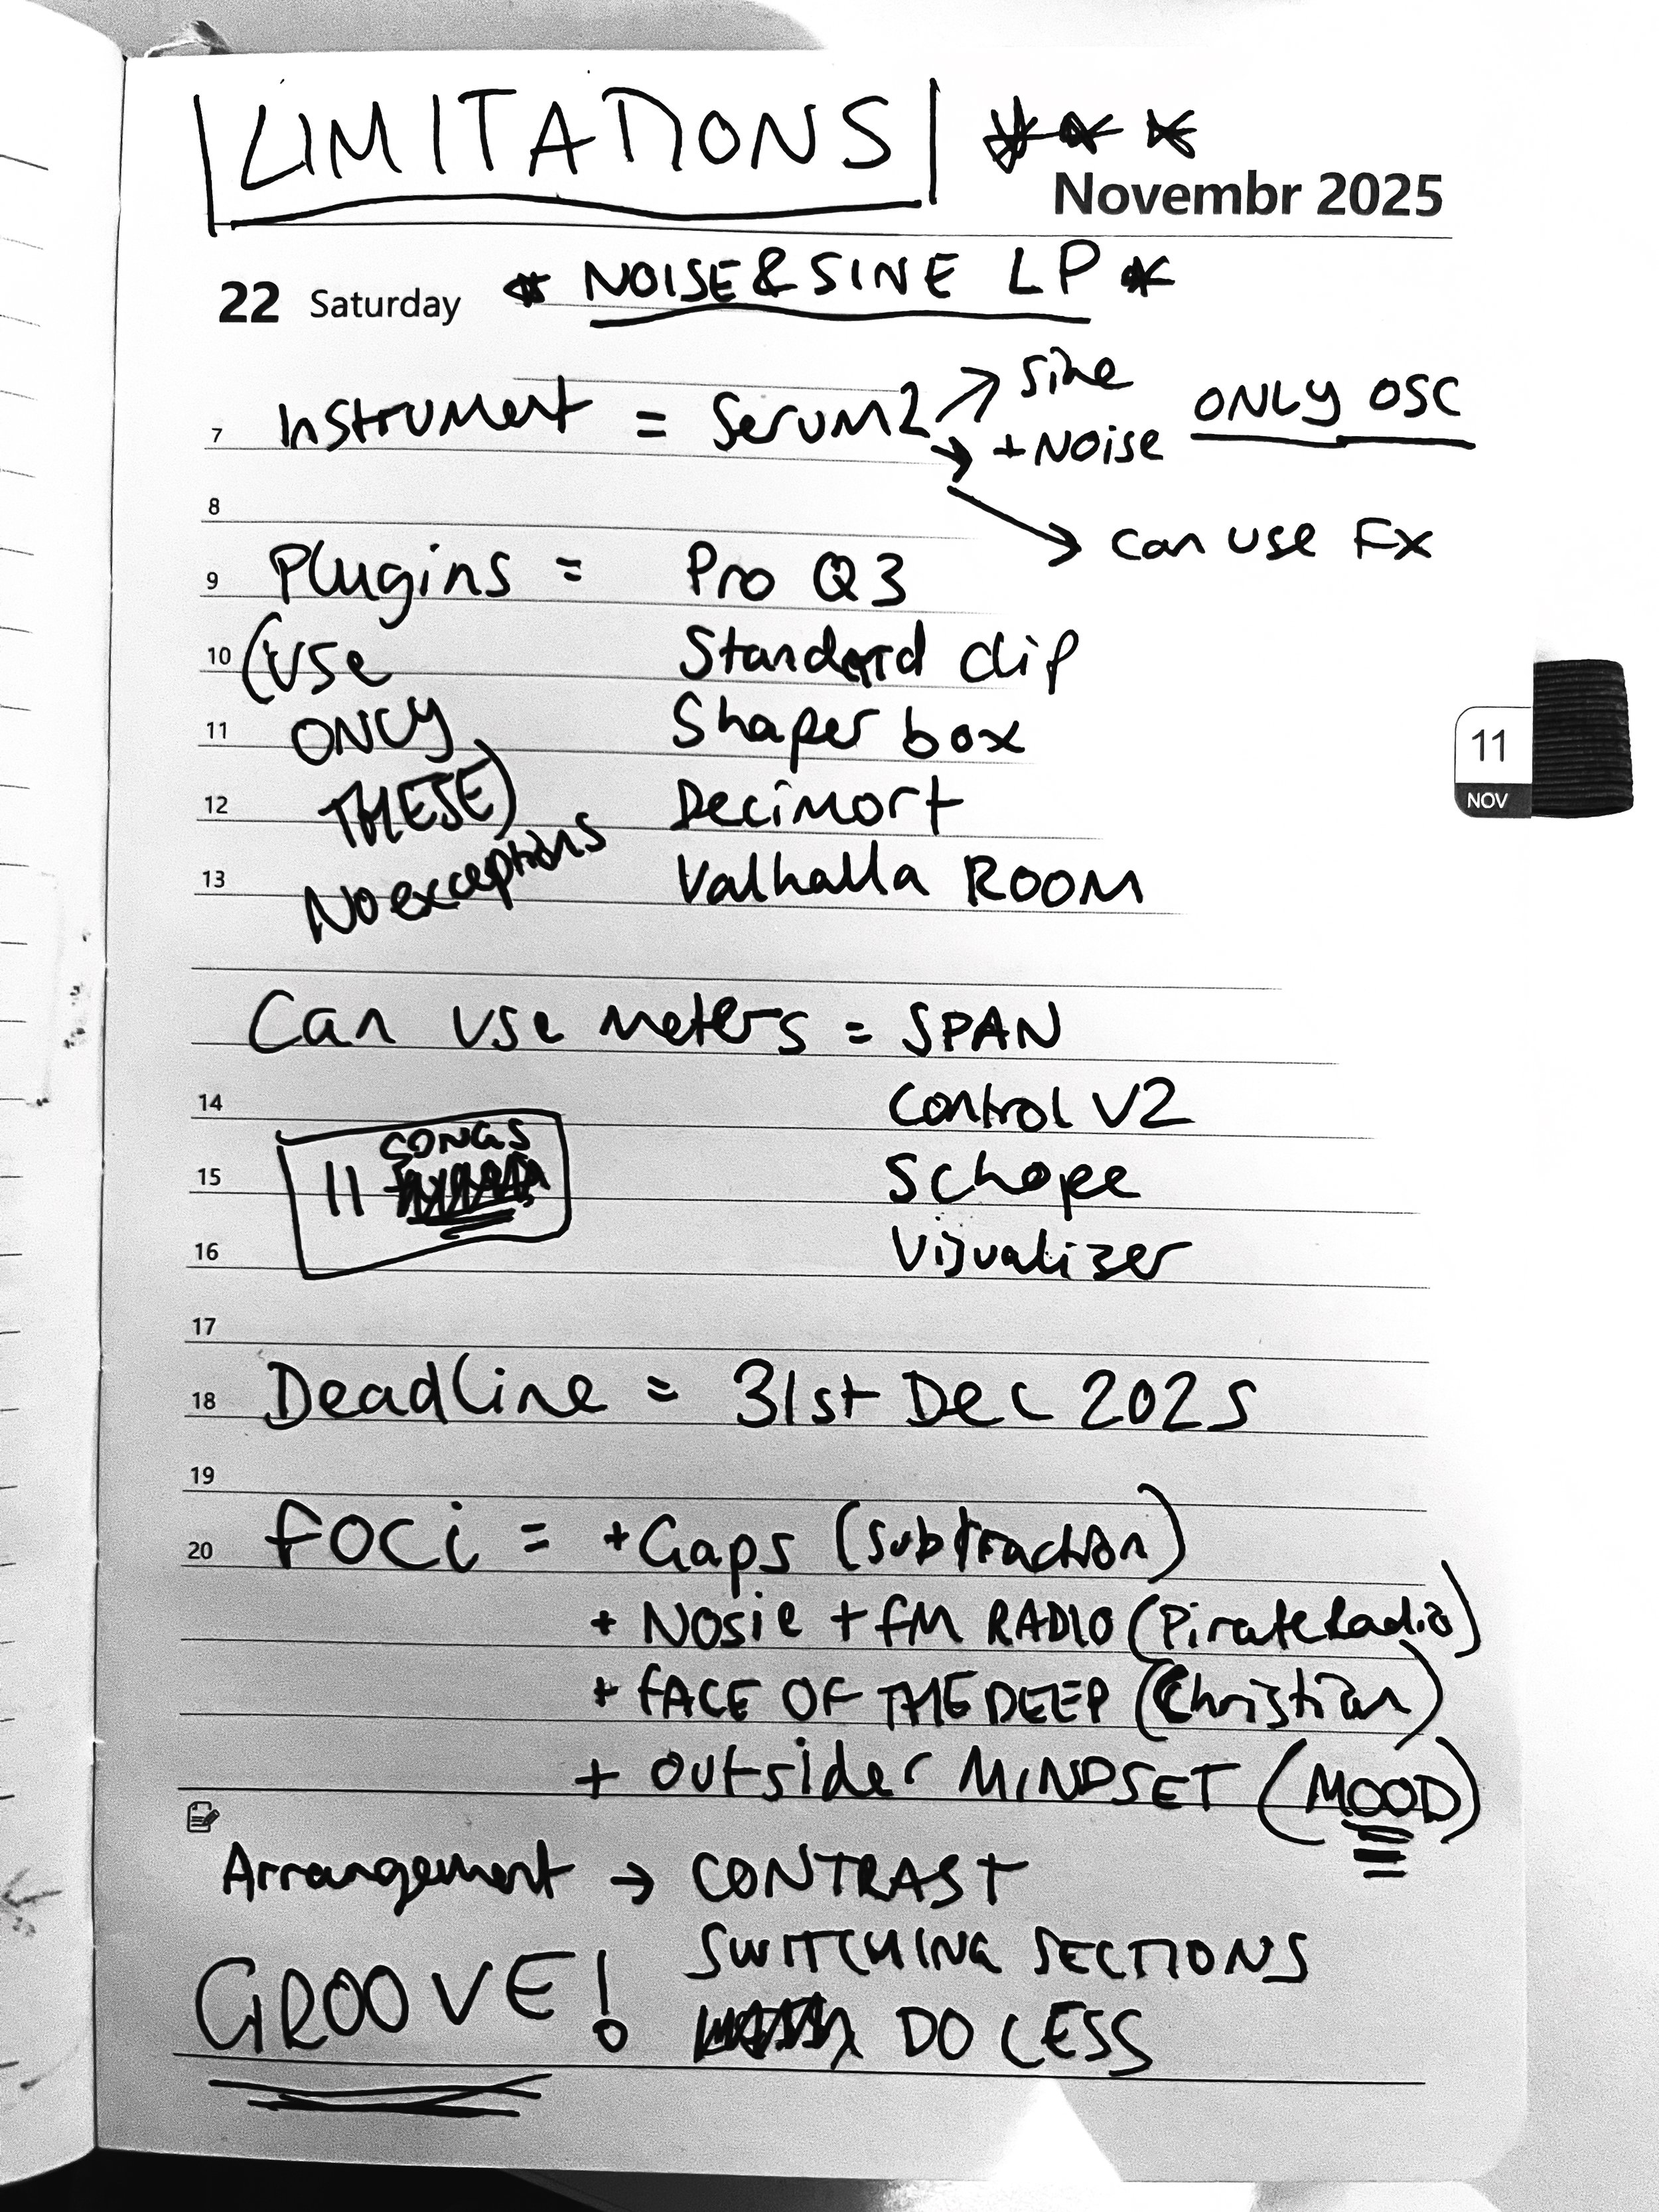 LIMITATIONS ***
Novembr 2025
22 Saturday * NOISE & SINE LP *
7 Instrument = Serum2 → Sine
→ + Noise ONLY OSC
8 → can use Fx
9 Plugins = Pro Q3
10 (Use Standard clip
11 ONLY Shaper box
12 THESE) Decimort
13 No exceptions Valhalla ROOM
Can use meters = SPAN
14 Control V2
15 11 SONGS Schope
16 Visualizer
17
18 Deadline = 31st Dec 2025
19
20 Foci = + Gaps (Subtraction)
+ Nosie + FM RADIO (Pirate Radio)
+ FACE OF THE DEEP (Christian)
+ Outsider MINDSET (MOOD)
Arrangement → CONTRAST
SWITCHING SECTIONS
GROOVE! DO LESS
11
NOV